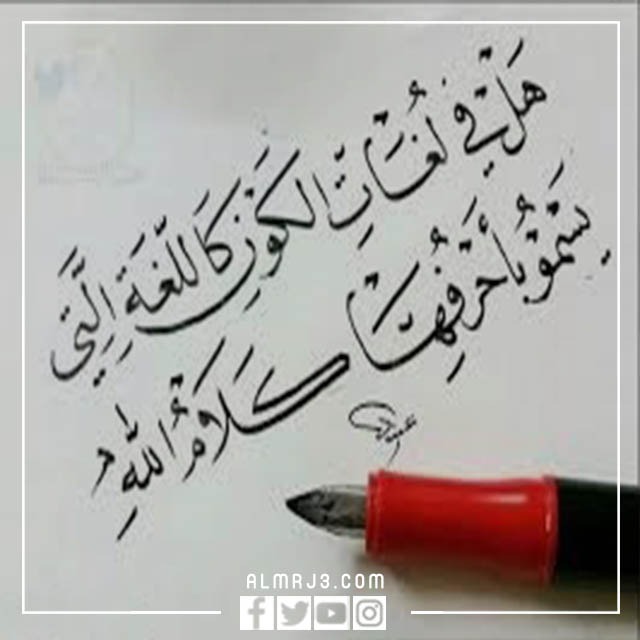 هَلْ فِي لُغَاتِ الكَوْنِ كَاللُّغَةِ الَّتِي
يَسْمُو بِأَحْرُفِهَا كَلَامُ اللَّهِ
ALMRJ3.COM